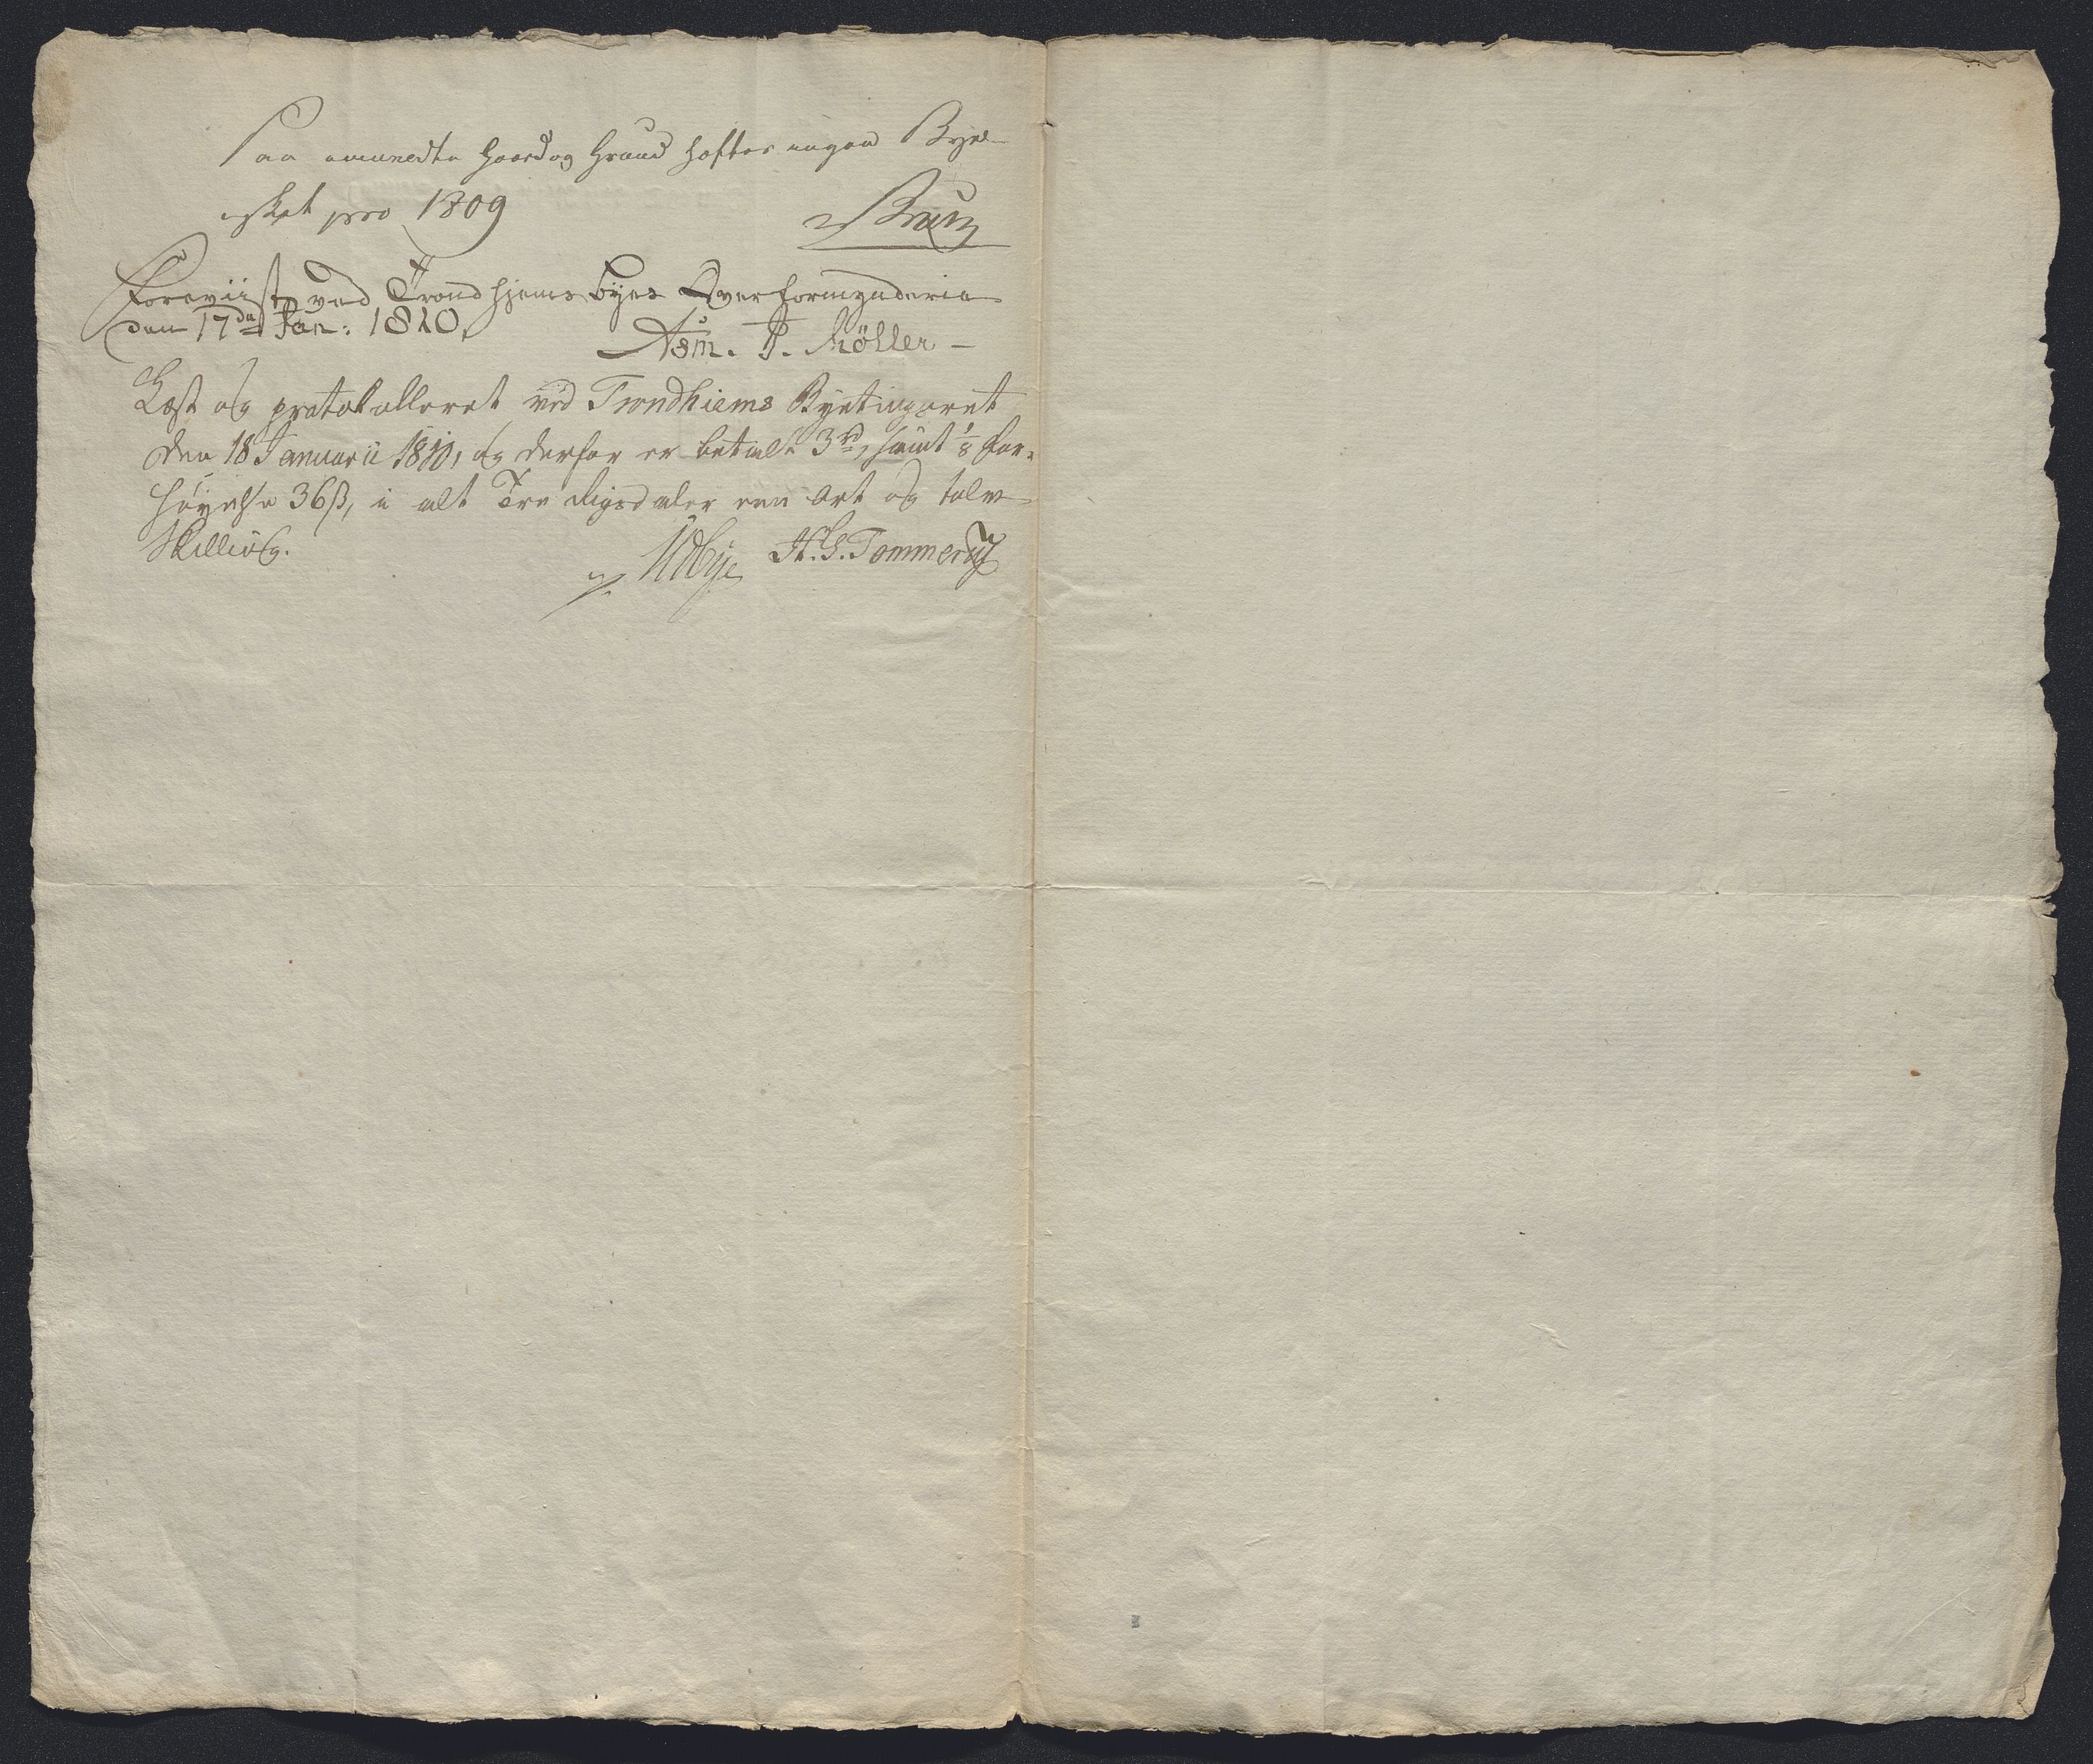 Paa ommeldte Gaard og Grund hæfter ingen Bye-
skat pro 1809 Brun
Foreviist ved Trondhjems byes Overformynderie
den 17de Jan: 1810. Asm. T. Möller
Læst og protokolleret ved Trondhiems Byetingsret
den 18 Januarii 1810, og derfor er betalt 3 rd, samt 1/8 For-
høyelse 36 ß, i alt Tre Rigsdaler een Ort og tolv
Skilling. Udbye H. S. Tommerup